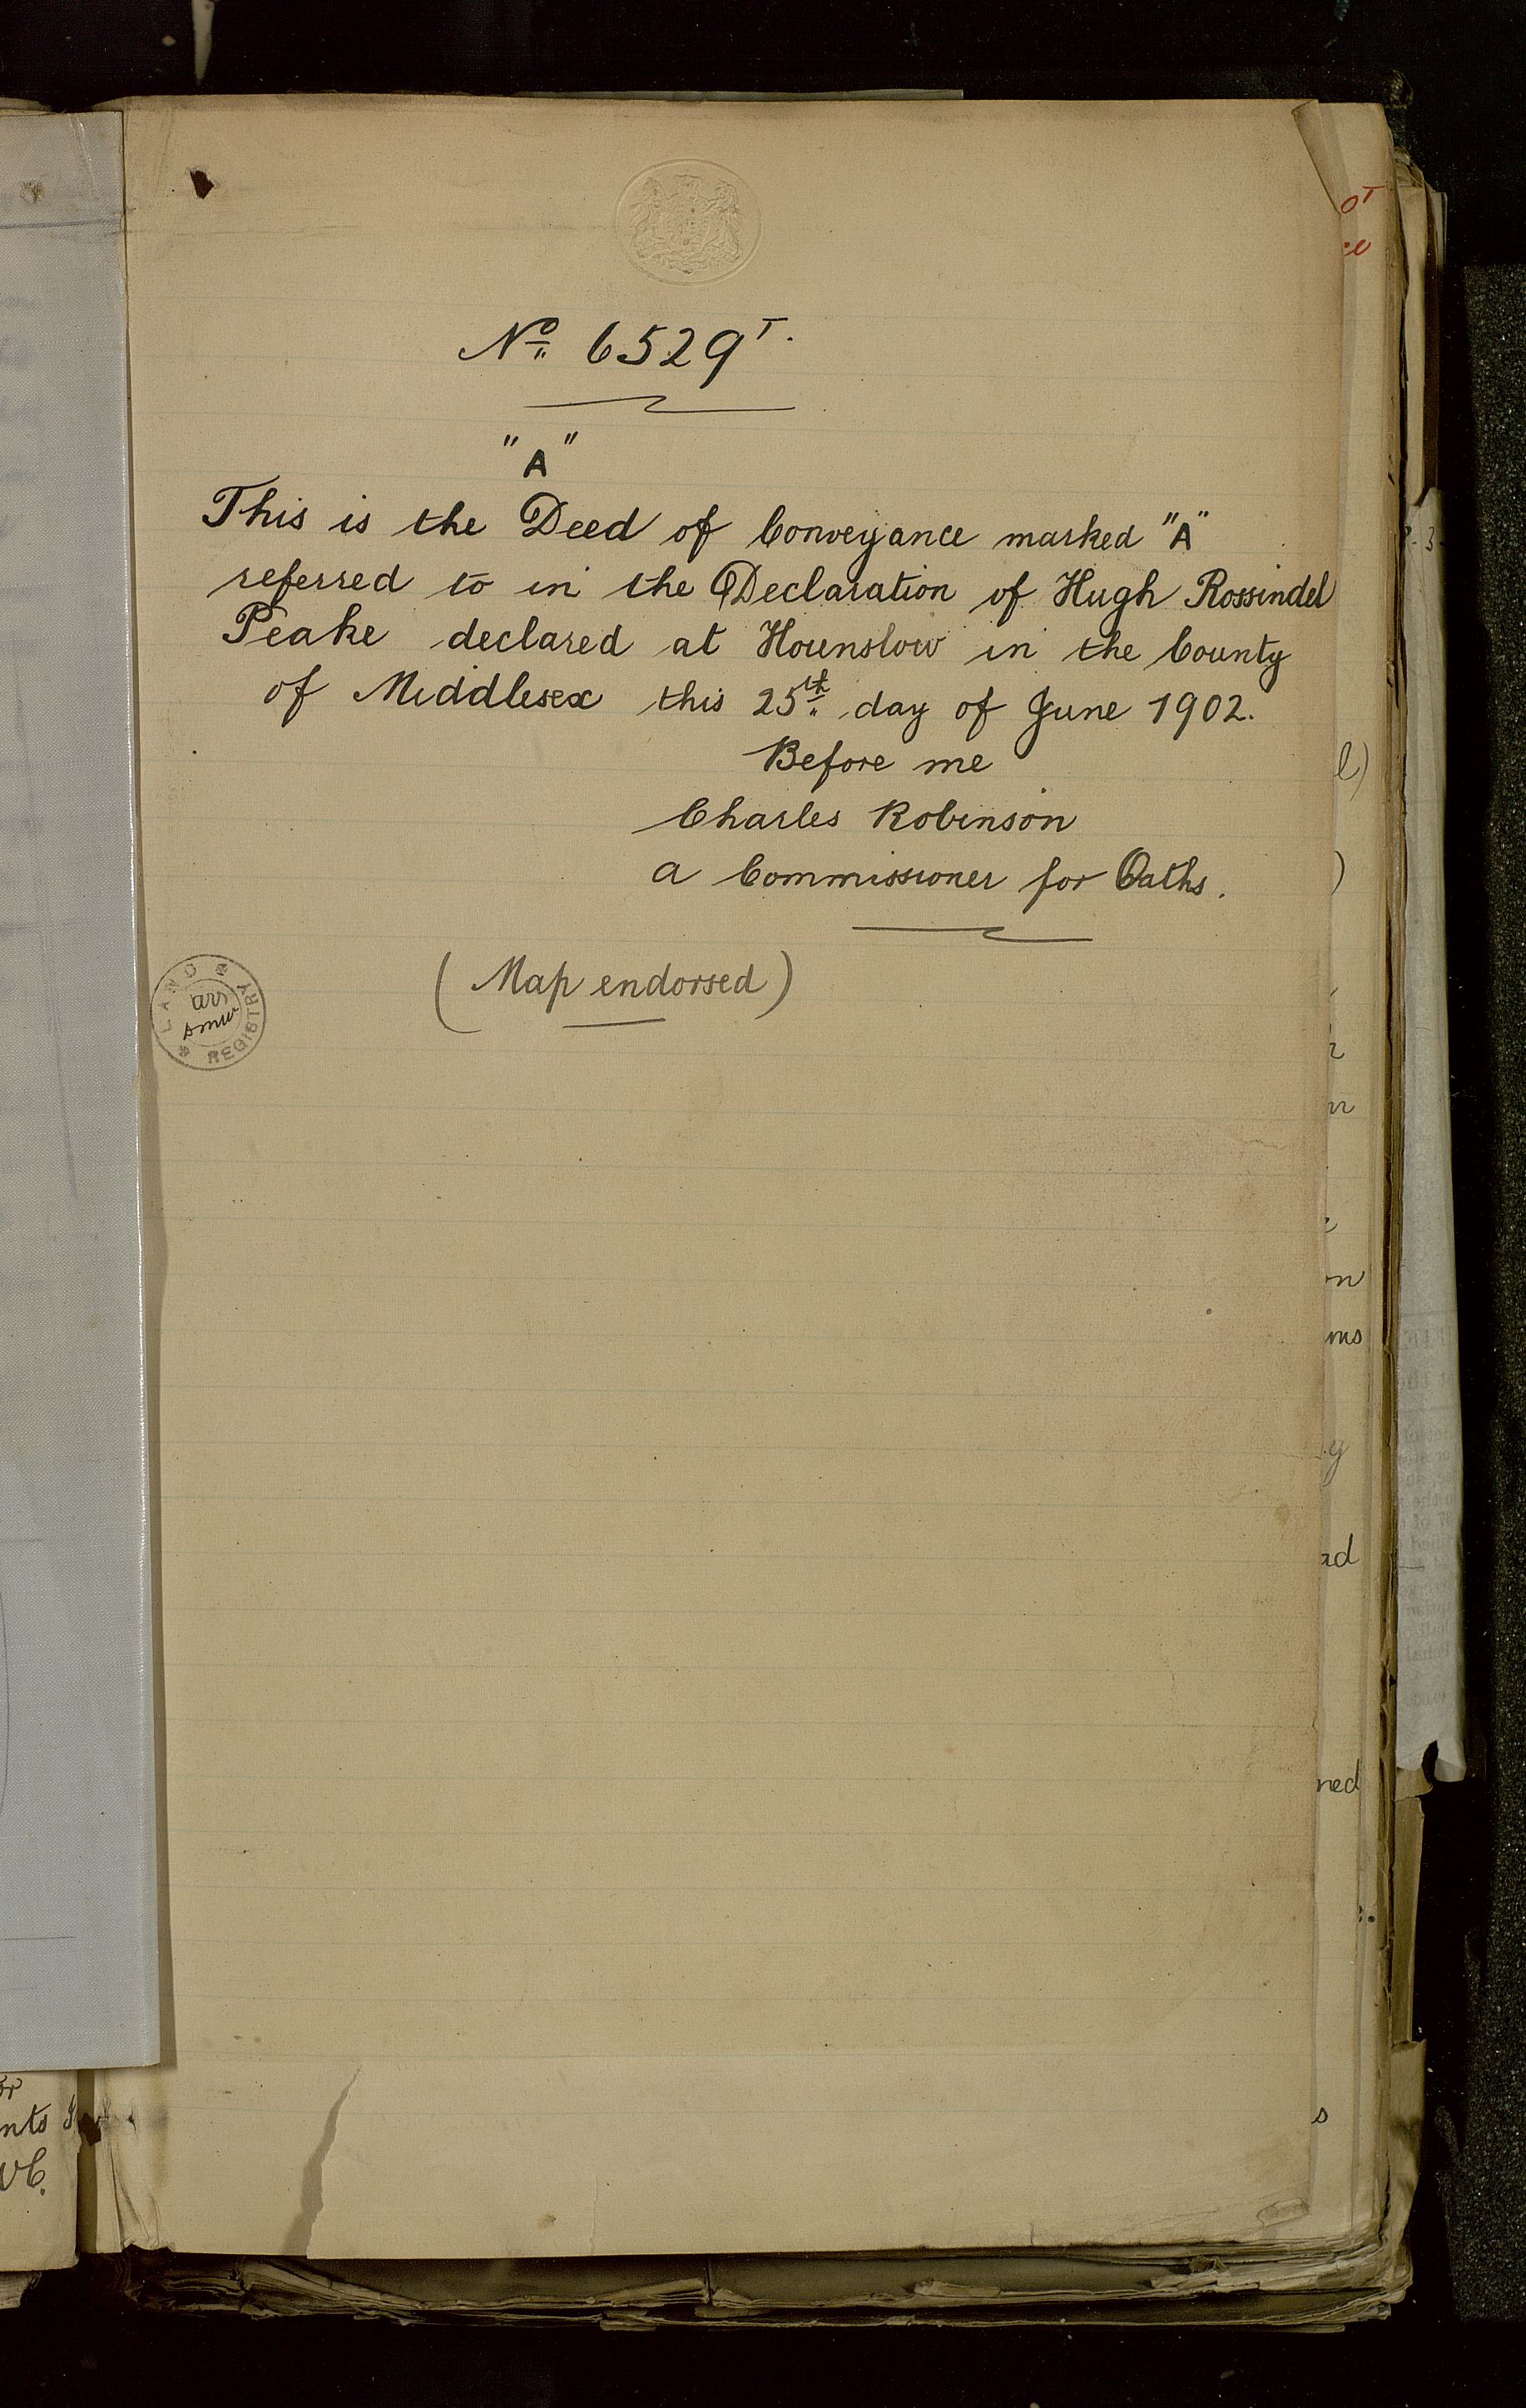 No 6529 T.
"A"
This is the Deed of Conveyance marked "A"
referred to in the Declaration of Hugh Rossindel
Peake declared at Hounslow in the County
of Middlesex this 25th day of June 1902.
Before me
Charles Robinson
a Commissioner for Oaths.
(Map endorsed)
LAND REGISTRY